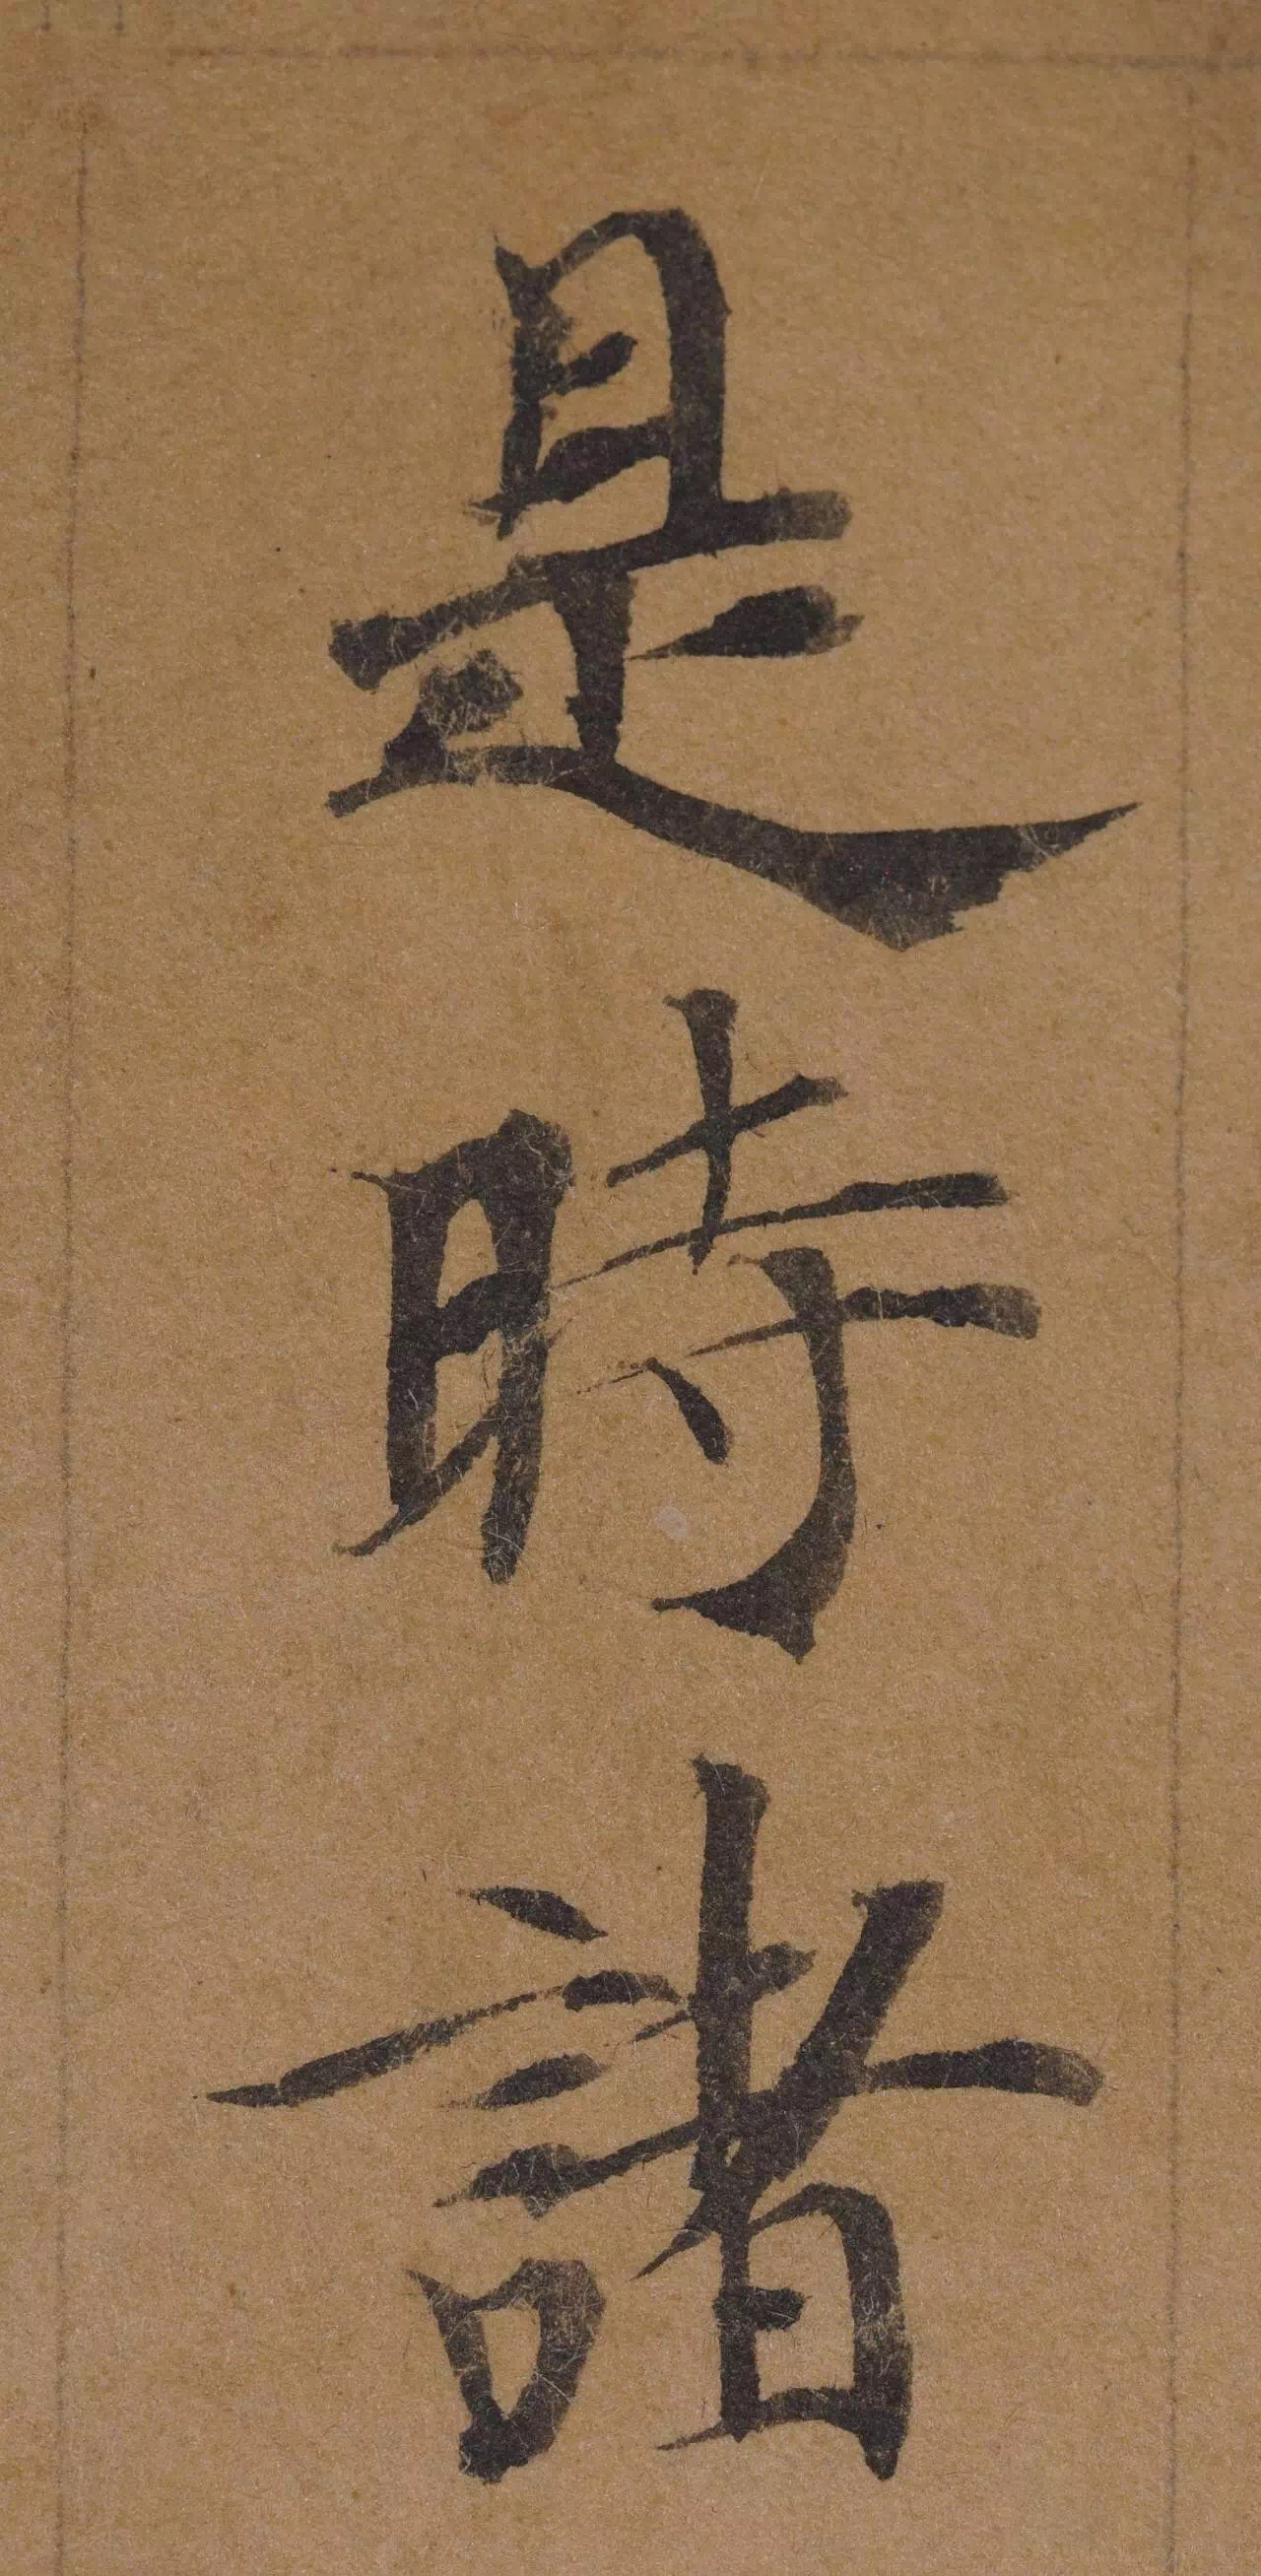 是時諸